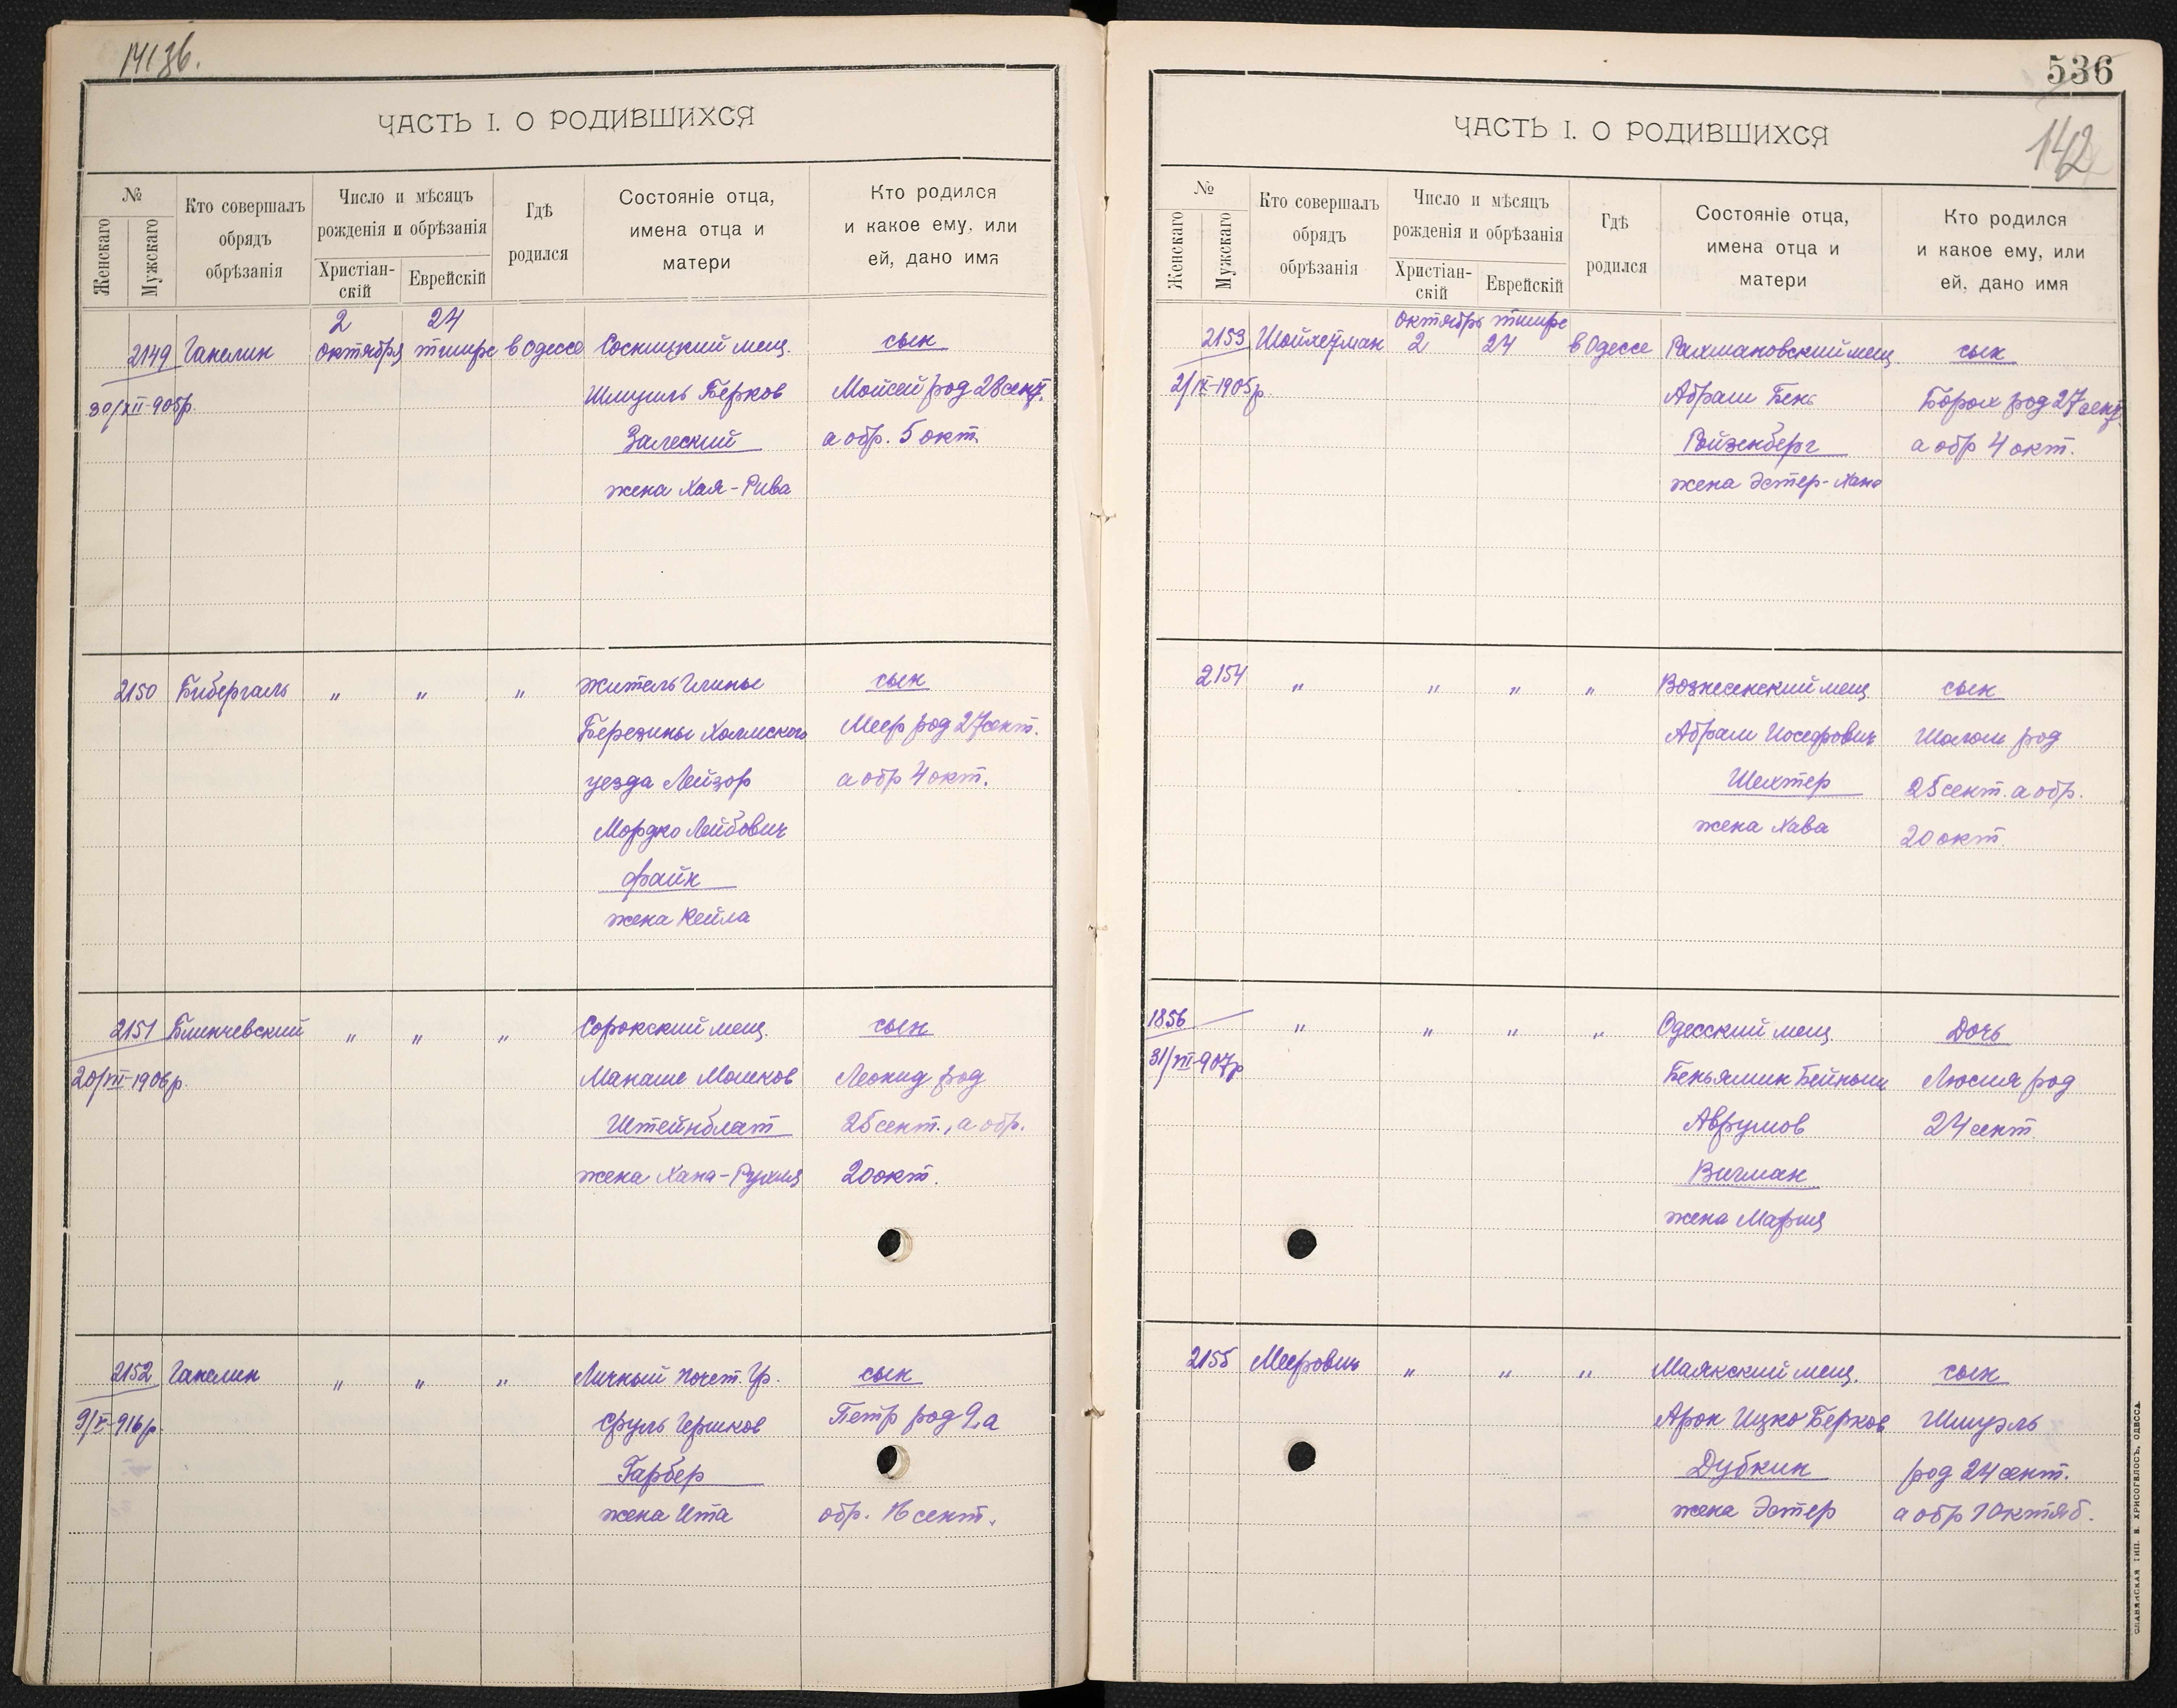 141 зв.
ЧАСТЬ I. О РОДИВШИХСЯ
№
Женскаго
Мужскаго
Кто совершалъ
обрядъ
обрѣзанія
Число и мѣсяцъ
рожденія и обрѣзанія
Христіан-
скій
Еврейскій
Гдѣ
родился
Состояніе отца,
имена отца и
матери
Кто родился
и какое ему, или
ей, дано имя
2 24
2149 Ганелин октября тишре в Одессе Сосницкий мещ. сын
30/XII-905р. Шмуиль Берков Мойсей род 28 сент.
Залеский а обр. 5 окт.
жена Хая-Рива
2150 Бибергаль " " " житель Глины сын
Березины Холмского Меер род 27 сент.
уезда Лейзор а обр 4 окт.
Мордко Лейбович
Файн
жена Кейла
2151 Блинчевский " " " Сорокский мещ. сын
20/VII-1906р. Манаше Мошков Леонид род
Штейнблат 25 сент., а обр.
жена Хана-Рухля 20 окт.
2152 Ганелин " " " Личный почет. Гр. сын
9/V-916р. Сруль Гершков Петр род 9, а
Гарбер
жена Ита обр. 16 сент.
536
142
ЧАСТЬ I. О РОДИВШИХСЯ
№
Женскаго
Мужскаго
Кто совершалъ
обрядъ
обрѣзанія
Число и мѣсяцъ
рожденія и обрѣзанія
Христіан-
скій
Еврейскій
Гдѣ
родился
Состояніе отца,
имена отца и
матери
Кто родился
и какое ему, или
ей, дано имя
октябрь тишре
2153 Шойхетман 2 24 в Одессе Рахмановский мещ. сын
21/IX-1905р Абрам Бень Борох род 27 сент.
Ройзенберг а обр 4 окт.
жена Эстер-Хана
2154 " " " " Вознесенский мещ. сын
Абрам Иосефович Шолом род
Шехтер 25 сент. а обр.
жена Хава 20 окт.
1856 " " " " Одесский мещ. Дочь
31/VII-907р Беньямин Бейныш Люсия род
Аврумов 24 сент.
Вигман
жена Мария
2155 Меерович " " " Маякский мещ. сын
Арон Ицко Берков Шмуэль
Дубкин род 24 сент.
жена Эстер а обр 1 октяб.
СЛАВЯНСКАЯ ТИП. В. ХРИСОГЕЛОСЪ, ОДЕССА.